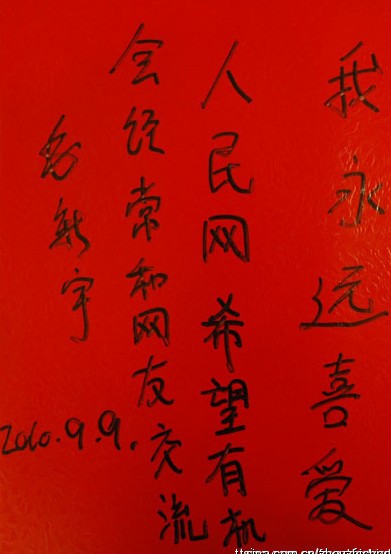 我永远喜爱
人民网希望有机
会经常和网友交流
毛新宇
2010.9.9.